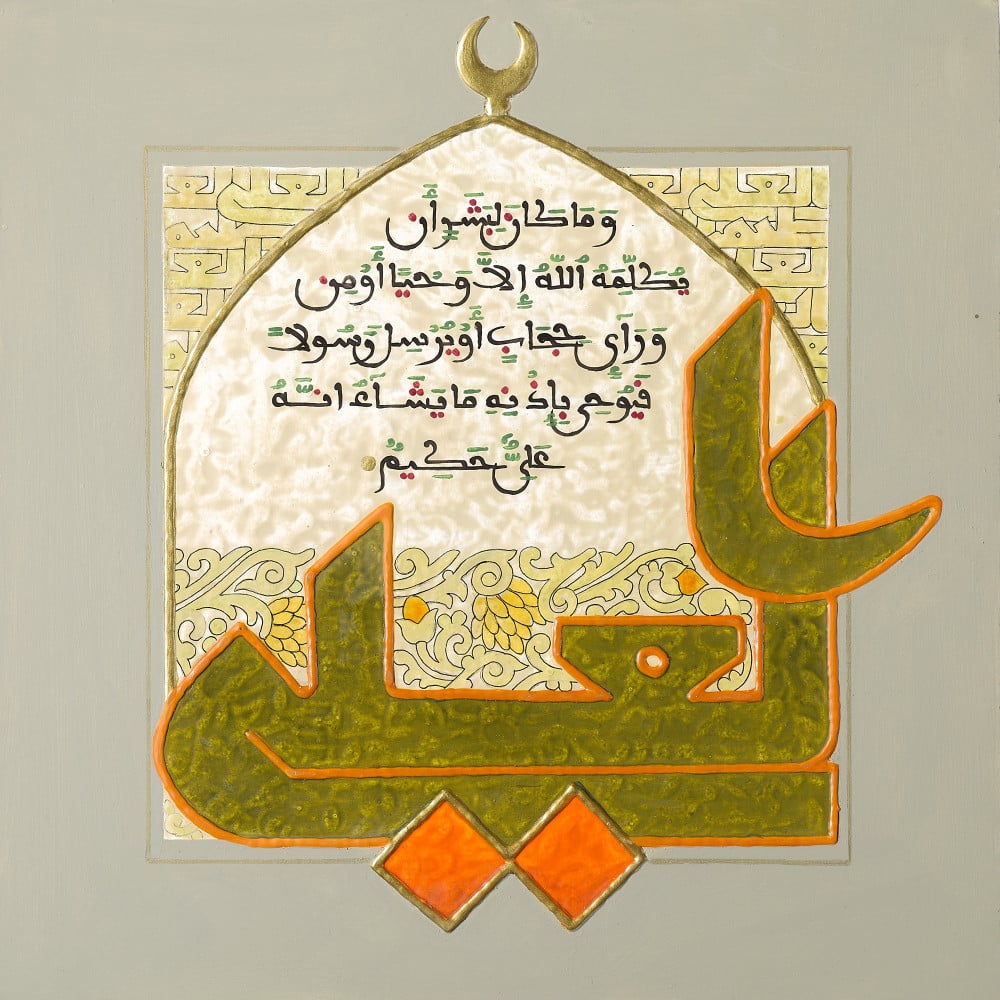 وَمَا كَانَ لِبَشَرٍ أَن
يُكَلِّمَهُ اللَّهُ إِلاَّ وَحْيًا أَوْ مِن
وَرَآءِى حِجَابٍ أَوْ يُرْسِلَ رَسُولاً
فَيُوحِيَ بِإِذْنِهِ مَا يَشَآءُ انَّهُ
عَلِيٌّ حَكِيمٌ
العلي